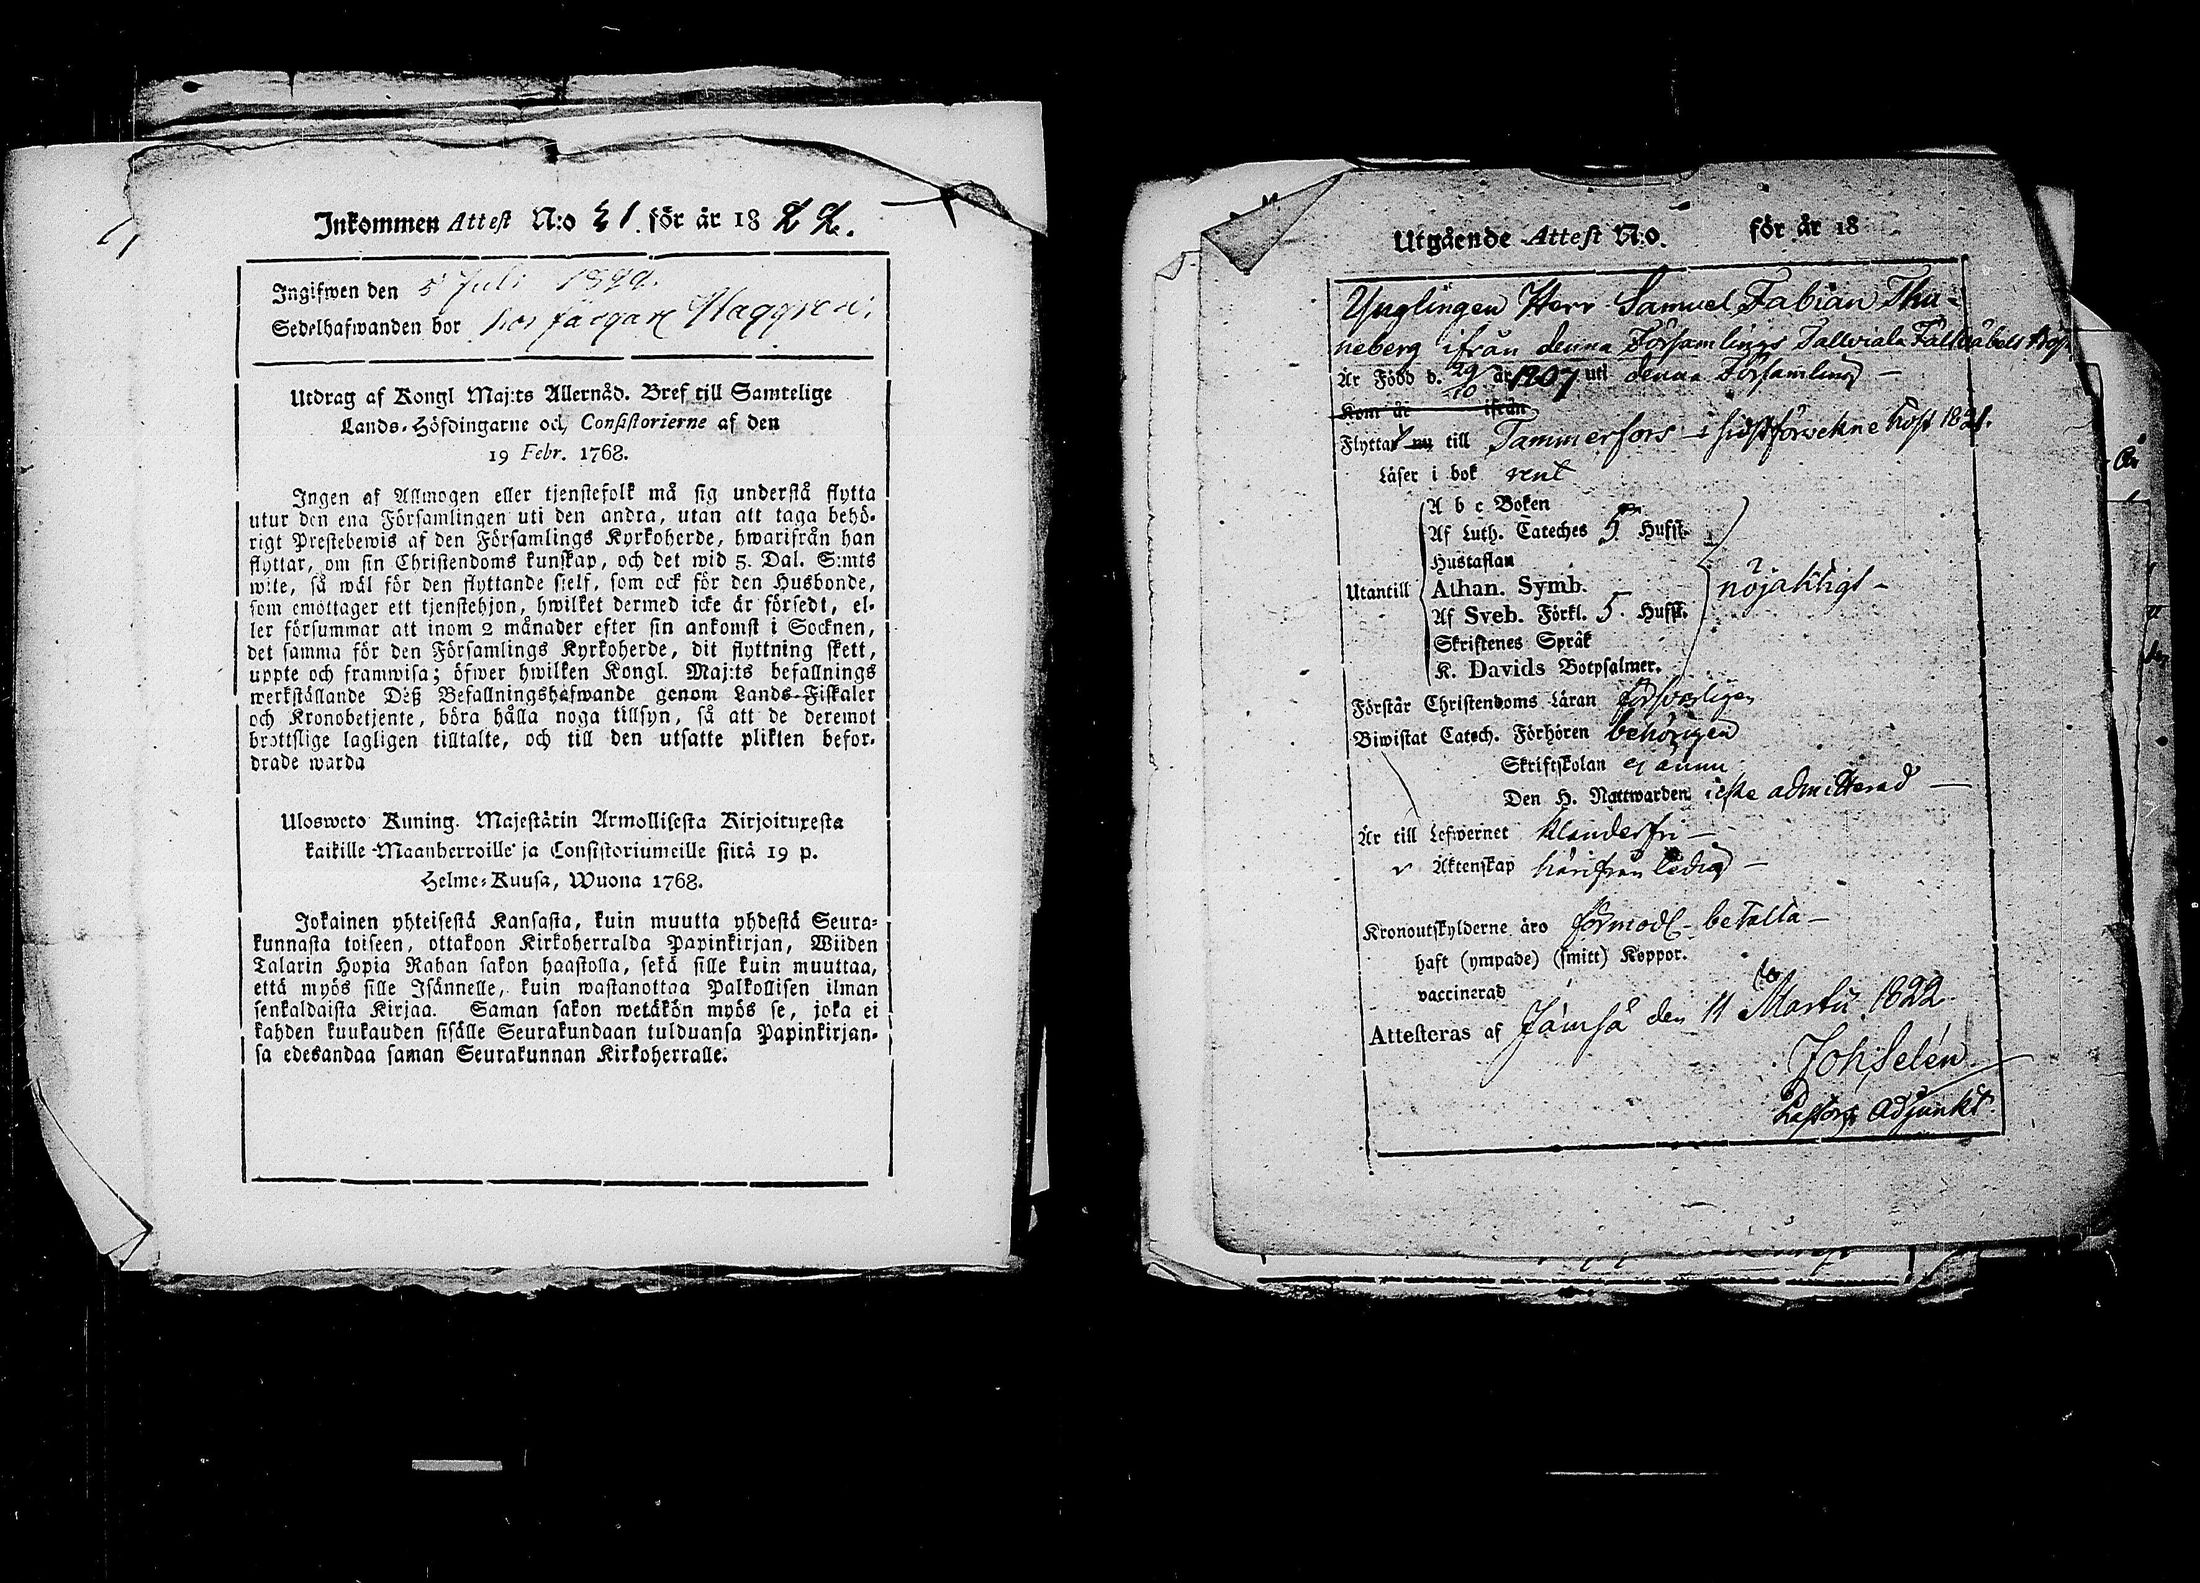 Inkommen Attest N:o 21. för år 1822.
Ingifwen den 5 Juli 1822.
Sedelhafwanden bor hos färgare Haggren.
Utdrag af Kongl Maj:ts Allernåd. Bref till Samtelige
Lands-Höfdingarne och Consistorierne af den
19 Febr. 1768.
Ingen af Allmogen eller tjenstefolk må sig understå flytta
utur den ena Församlingen uti den andra, utan att taga behö-
rigt Prestebewis af den Församlings Kyrkoherde, hwarifrån han
flyttar, om sin Christendoms kunskap, och det wid 5. Dal. S:mts
wite, så wäl för den flyttande sjelf, som ock för den Husbonde,
som emottager ett tjenstehjon, hwilket dermed icke är försedt, el-
ler försummar att inom 2 månader efter sin ankomst i Socknen,
det samma för den Församlings Kyrkoherde, dit flyttning skett,
uppte och framwisa; öfwer hwilken Kongl. Maj:ts befallnings
werkställande Deß Befallningshafwande genom Lands-Fiskaler
och Kronobetjente, böra hålla noga tillsyn, så att de deremot
brottslige lagligen tilltalte, och till den utsatte plikten befor-
drade warda
Ulosweto Kuning. Majestätin Armollisesta Kirjoituxesta
kaikille Maanherroille ja Consistoriumeille siitä 19 p.
Helme-Kuusa, Wuona 1768.
Jokainen yhteisestä Kansasta, kuin muutta yhdestä Seura-
kunnasta toiseen, ottakoon Kirkoherralda Papinkirjan, Wiiden
Talarin Hopia Rahan sakon haastolla, sekä sille kuin muuttaa,
että myös sille Isännelle, kuin wastanottaa Palkollisen ilman
senkaldaista Kirjaa. Saman sakon wetäkön myös se, joka ei
kahden kuukauden sisälle Seurakundaan tulduansa Papinkirjan-
sa edesandaa saman Seurakunnan Kirkoherralle.
Utgående Attest N:o. för år 18
Ynglingen Herr Samuel Fabian Thu-
neberg ifrån denna Församlings Fältwäbels
Är Född d. 29/10 år 1807 uti denna Församling —
Kom år ifrån
Flyttar nu till Tammerfors i sidstförwekne höst 1821.
Läser i bok rent
A b c Boken
Af Luth. Cateches 5 Hufst.
Hustaflan
Utantill Athan. Symb. nöjaktigt —
Af Sveb. Förkl. 5. Hufst.
Skriftenes Språk
K. Davids Botpsalmer.
Förstår Christendoms Läran försvarligen
Biwistat Catech. Förhören behörigen
Skriftskolan ej ännu
Den H. Nattwarden icke admitterad —
Är till Lefwernet klanderfri —
r Äktenskap härifrån ledig —
Kronoutskylderne äro förmodl. betalta —
haft (ympade) (smitt) Koppor.
vaccinerad
Attesteras af Jämsä den 11 Martii 1822
Joh Selén
Pastors Adjunkt.